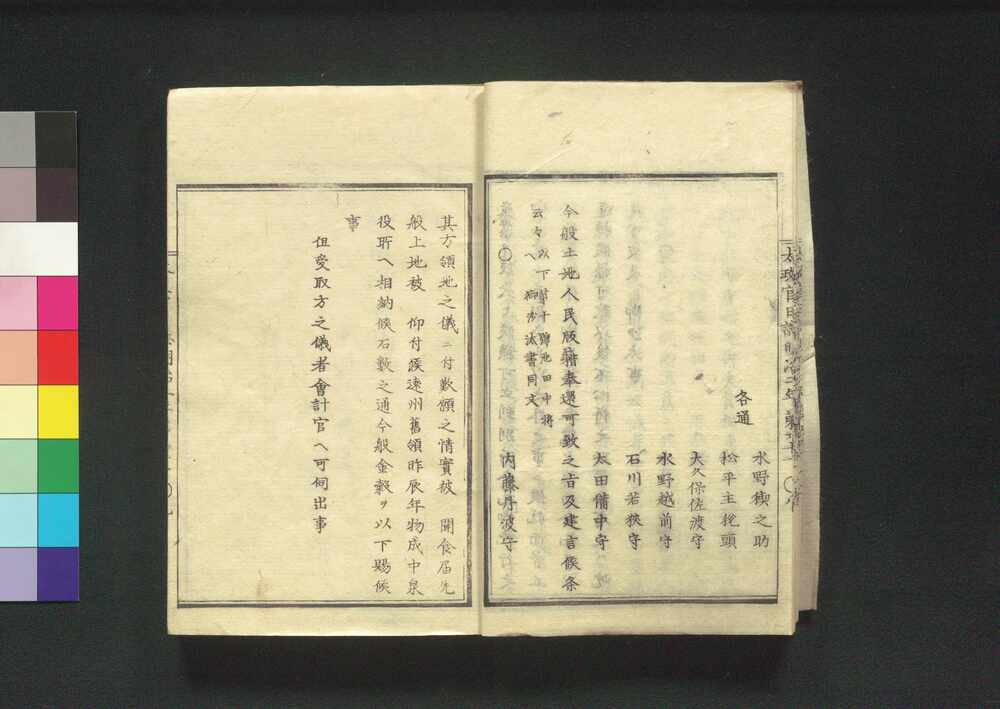 各通
水野鍥之助
松平主税頭
大久保佐渡守
水野越前守
石川若狹守
太田備中守
今般土地人民版籍奉還可致之旨及建言候条
云々以下第十號池田中将
へ御沙汰書同文
〇
内藤丹波守
其方領地之儀ニ付歎願之情實被 聞食届先
般上地被 仰付候遠州舊領昨辰年物成中泉
役所ヘ相納候石數之通今般金穀ヲ以下賜候
事
但受取方之儀者會計官ヘ可伺出事
太政官日誌明治二年